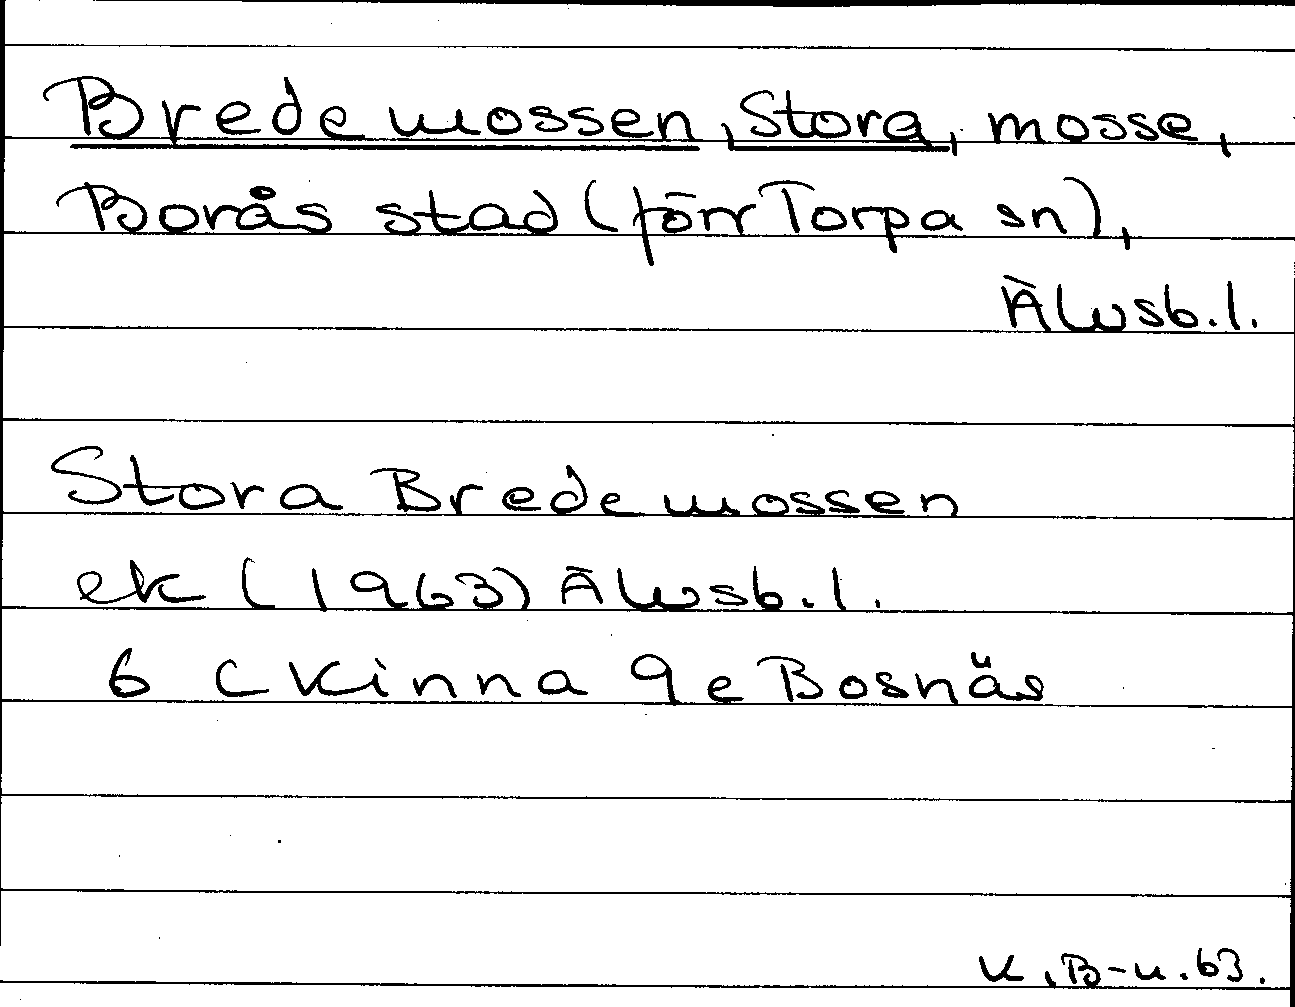 Bredemossen, Stora, mosse,
Borås stad (förr Torpa sn),
Älvsb.l.
Stora Bredemossen
ek (1963) Älvsb.l.
6 C Kinna 9e Bosnäs
K.B-u.63.